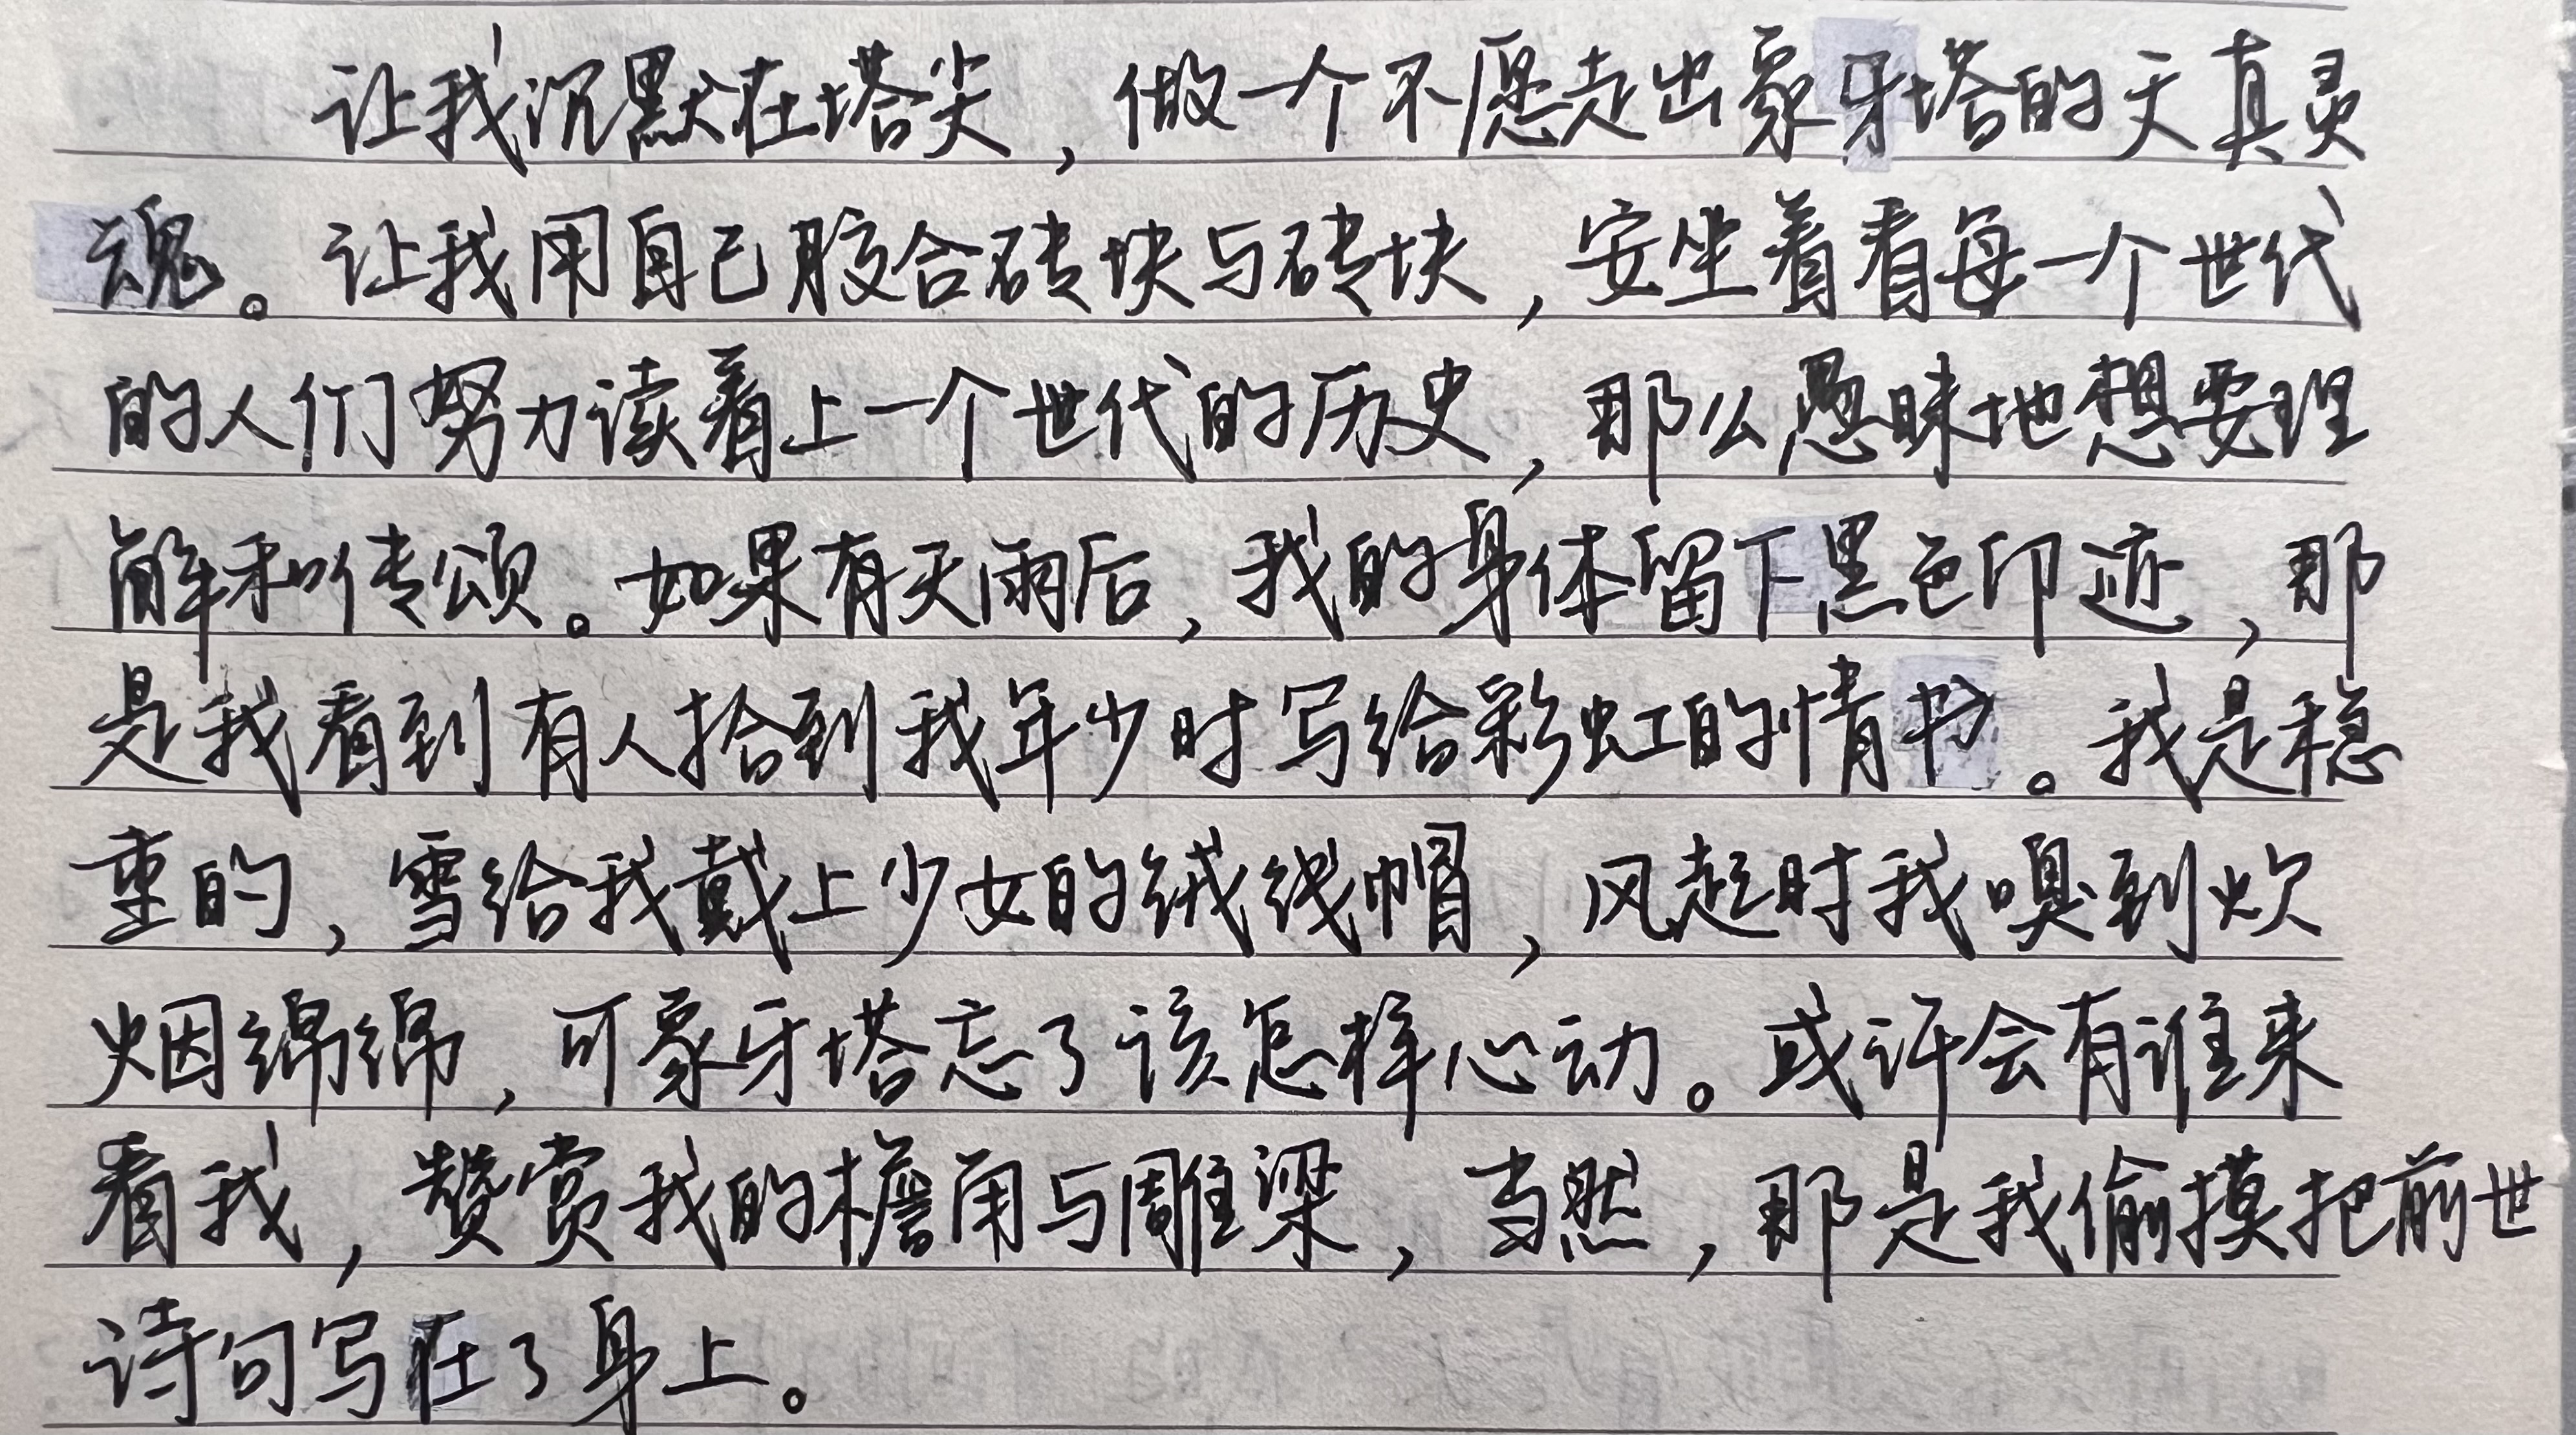 让我沉默在塔尖，做一个不愿走出象牙塔的天真灵
魂。让我用自己胶合砖块与砖块，安坐着看每一个世代
的人们努力读着上一个世代的历史，那么愚昧地想要理
解和传颂。如果有天雨后，我的身体留下黑色印迹，那
是我看到有人拾到我年少时写给彩虹的情书。我是稳
重的，雪给我戴上少女的绒线帽，风起时我嗅到炊
烟绵绵，可象牙塔忘了该怎样心动。或许会有谁来
看我，赞赏我的檐角与雕梁，当然，那是我偷摸把前世
诗句写在了身上。